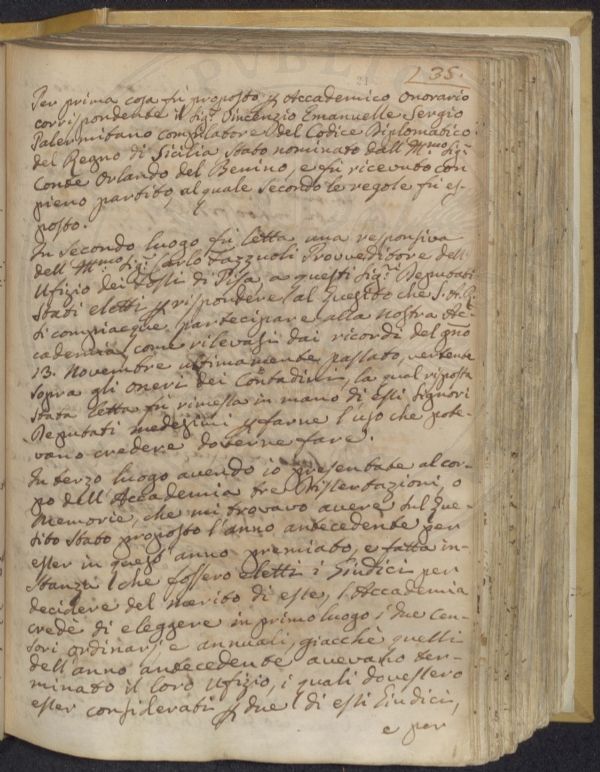 235.
Per prima cosa fù proposto p Accademico Onorario
corrispondente il Sig.r Vincenzio Emanuelle Sergio
Palermitano compilatore del Codice Diplomatico
del Regno di Sicilia stato nominato dall' Ill.mo Sig.r
Conte Orlando del Benino, e fù ricevuto con
pieno partito, al quale secondo le regole fù es-
posto.
In secondo luogo fù letta una responsiva
dell' Ill.mo Sig.r Carlo Tazzuoli Provveditore dell'
Ufizio dei Fossi di Pisa, a questi Sig.ri Deputati
stati eletti p rispondere al Quesito che S. A. R.
si compiacque partecipare alla nostra Ac-
cademia come rilevasi dai ricordi del gno
13. Novembre ultimamente passato, vertente
sopra gli oneri dei Contadini, la qual risposta
stata letta fù rimessa in mano di essi Signori
Deputati medesimi p farne l'uso che pote-
vano credere doverne fare.
In terzo luogo avendo io presentate al cor-
po dell' Accademia tre Dissertazioni, o
Memorie, che mi trovavo avere sul Que-
sito stato proposto l'anno antecedente per
esser in quest' anno premiato, e fatta in-
stanza che fossero eletti i Giudici per
decidere del merito di esse, l'Accademia
credè di eleggere in primo luogo i due Cen-
sori ordinarj e annuali, giacchè quelli
dell' anno antecedente avevano ter-
minato il loro Ufizio, i quali dovessero
esser considerati p due di essi Giudici,
e per